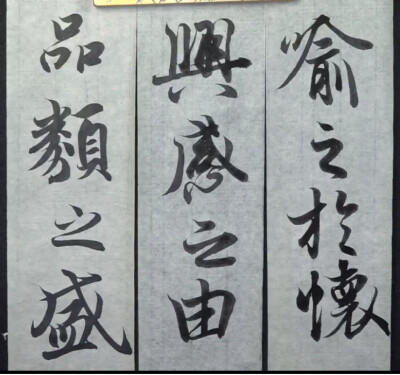 喻之於懷
興感之由
品類之盛